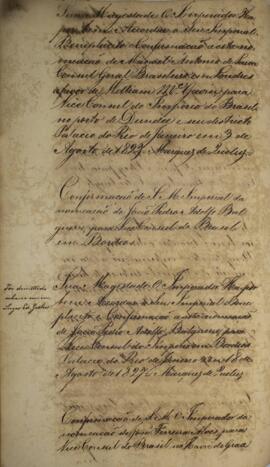 Sua Magestade O Imperador Ha
por bem Accordar o Seu Imperial
Beneplacito e Confirmação a esta no-
meação de Manoel Antonio de
Consul Geral Brasileiro em Londres
a favor de William para
Vice Consul do Imperio do Brasil
no porto de Dundee e seu districto
Palacio do Rio de Janeiro em 3 de
Agosto de 1827. Marquez de Queluz.
Confirmação de S. M. Imperial da
nomeação de João Pedro Adolfo
para Vice Consul do Brasil
em Bordeos
Sua Magestade O Imperador Ha por
bem Accordar o Seu Imperial Bene
placito e Confirmação a esta nomeação
de João Pedro Adolfo para
Vice Consul do Imperio em Bordeos
Palacio do Rio de Janeiro em 8 de
Agosto de 1827. Marquez de Queluz
Foi demittido
Confirmação de S. M. O Imperador da
nomeação de José Ferreira para
Vice Consul do Brasil no Havre de Grace